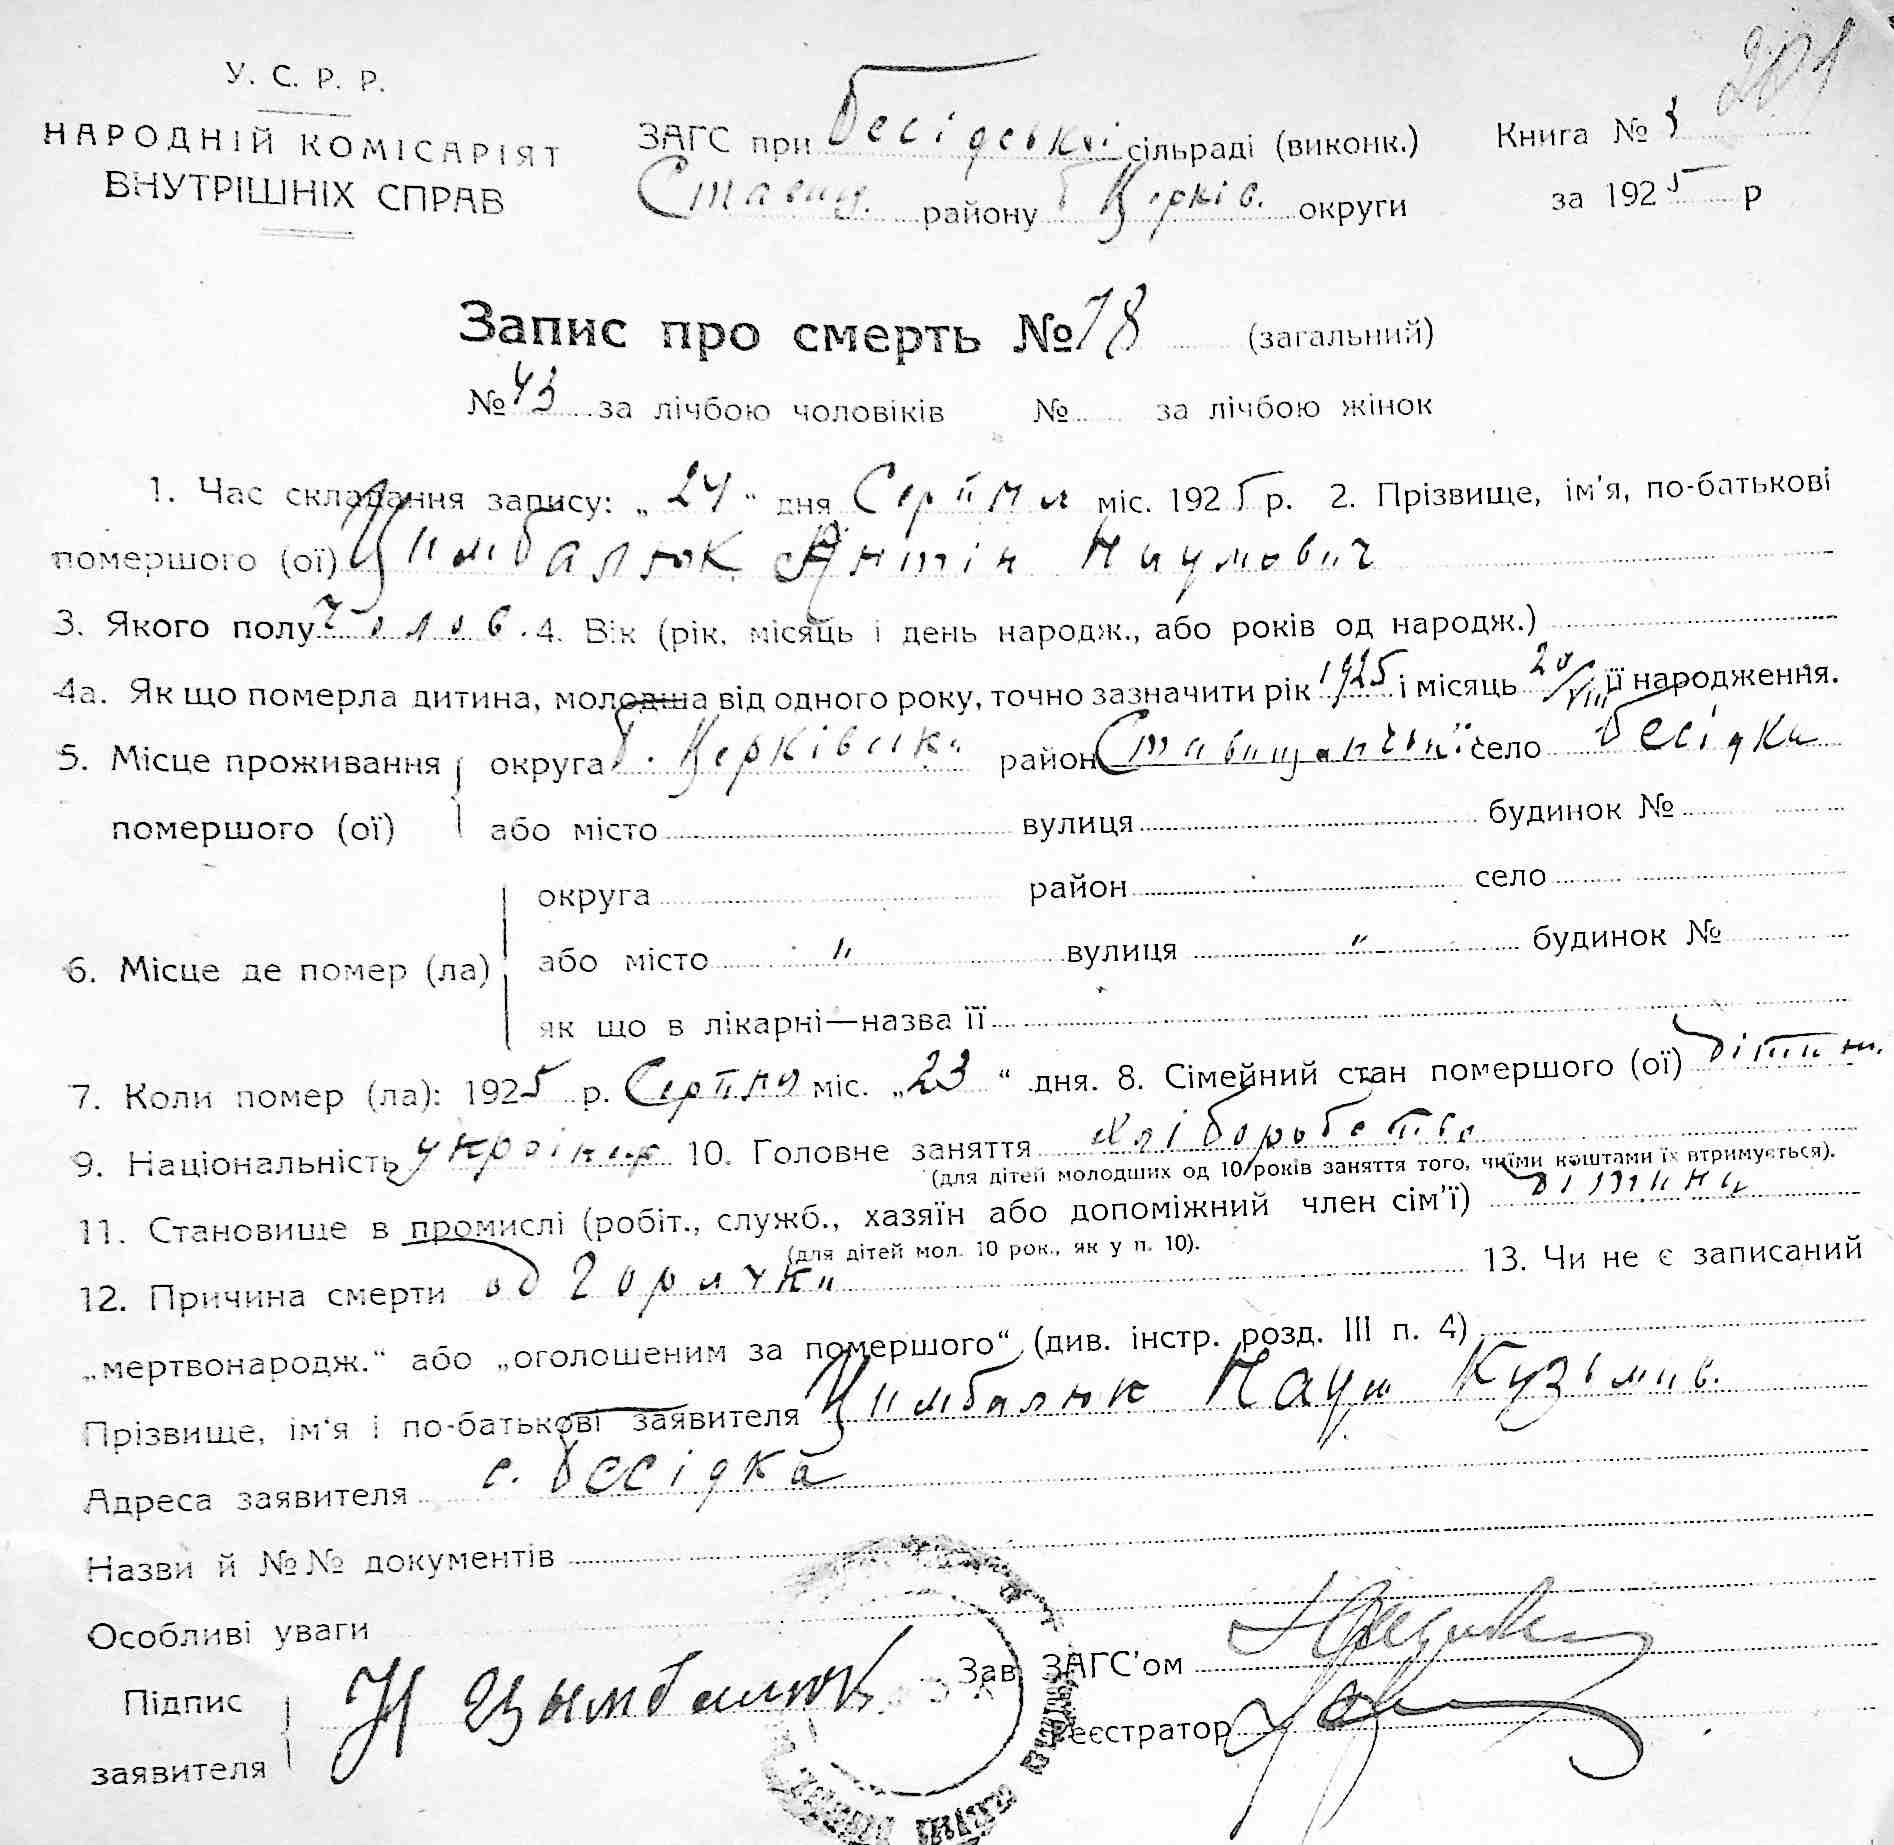 201
У. С. Р. Р.
НАРОДНІЙ КОМІСАРІЯТ
ВНУТРІШНІХ СПРАВ
ЗАГС при Бесідській сільраді (виконк.)
Ставищ. району Б Церків. округи
Книга № 3
за 1925 р
Запис про смерть № 78 (загальний)
№ 43 за лічбою чоловіків № за лічбою жінок
1. Час складання запису: „24“ дня Серпня міс. 1925 р. 2. Прізвище, ім'я, по-батькові
помершого (ої) Цимбалюк Антін Наумович
3. Якого полу Чолов. 4. Вік (рік, місяць і день народж., або років од народж.)
4а. Як що померла дитина, молодша від одного року, точно зазначити рік 1925 і місяць 20/VIII її народження.
5. Місце проживання помершого (ої) округа Б. Церківська район Ставищанський село Бесідка
або місто вулиця будинок №
6. Місце де помер (ла) округа район село
або місто " вулиця " будинок №
як що в лікарні—назва її
7. Коли помер (ла): 1925 р. Серпня міс. „23“ дня. 8. Сімейний стан помершого (ої) дитина.
9. Національність українец 10. Головне заняття хліборобство
(для дітей молодших од 10 років заняття того, чиїми коштами їх втримується).
11. Становище в промислі (робіт., служб., хазяїн або допоміжний член сім'ї) дитина
(для дітей мол. 10 рок., як у п. 10).
12. Причина смерти од горячки 13. Чи не є записаний
„мертвонародж.“ або „оголошеним за помершого“ (див. інстр. розд. III п. 4)
Прізвище, ім'я і по-батькові заявителя Цимбалюк Наум Кузьмив.
Адреса заявителя с. Бесідка
Назви й №№ документів
Особливі уваги
Підпис заявителя Н Цымбалюк
Зав. ЗАГС'ом
Реєстратор